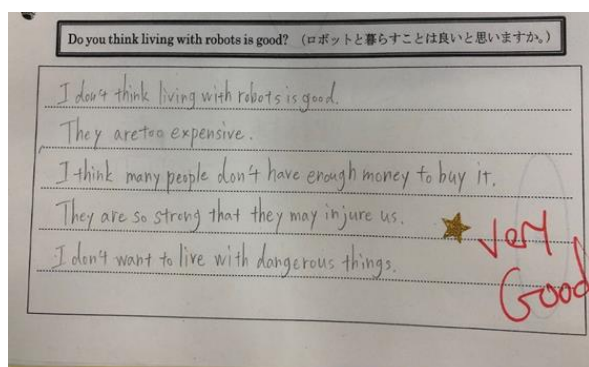 Do you think living with robots is good? (ロボットと暮らすことは良いと思いますか。)
I don't think living with robots is good.
They are too expensive.
I think many people don't have enough money to buy it.
They are so strong that they may injure us.
I don't want to live with dangerous things.
Very
Good